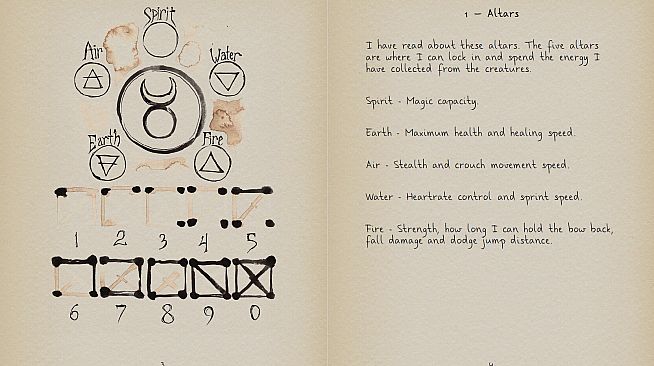 Spirit
Air
Water
Earth
Fire
1 2 3 4 5
6 7 8 9 0
1 - Altars
I have read about these altars. The five altars
are where I can lock in and spend the energy I
have collected from the creatures.
Spirit - Magic capacity.
Earth - Maximum health and healing speed.
Air - Stealth and crouch movement speed.
Water - Heartrate control and sprint speed.
Fire - Strength, how long I can hold the bow back,
fall damage and dodge jump distance.